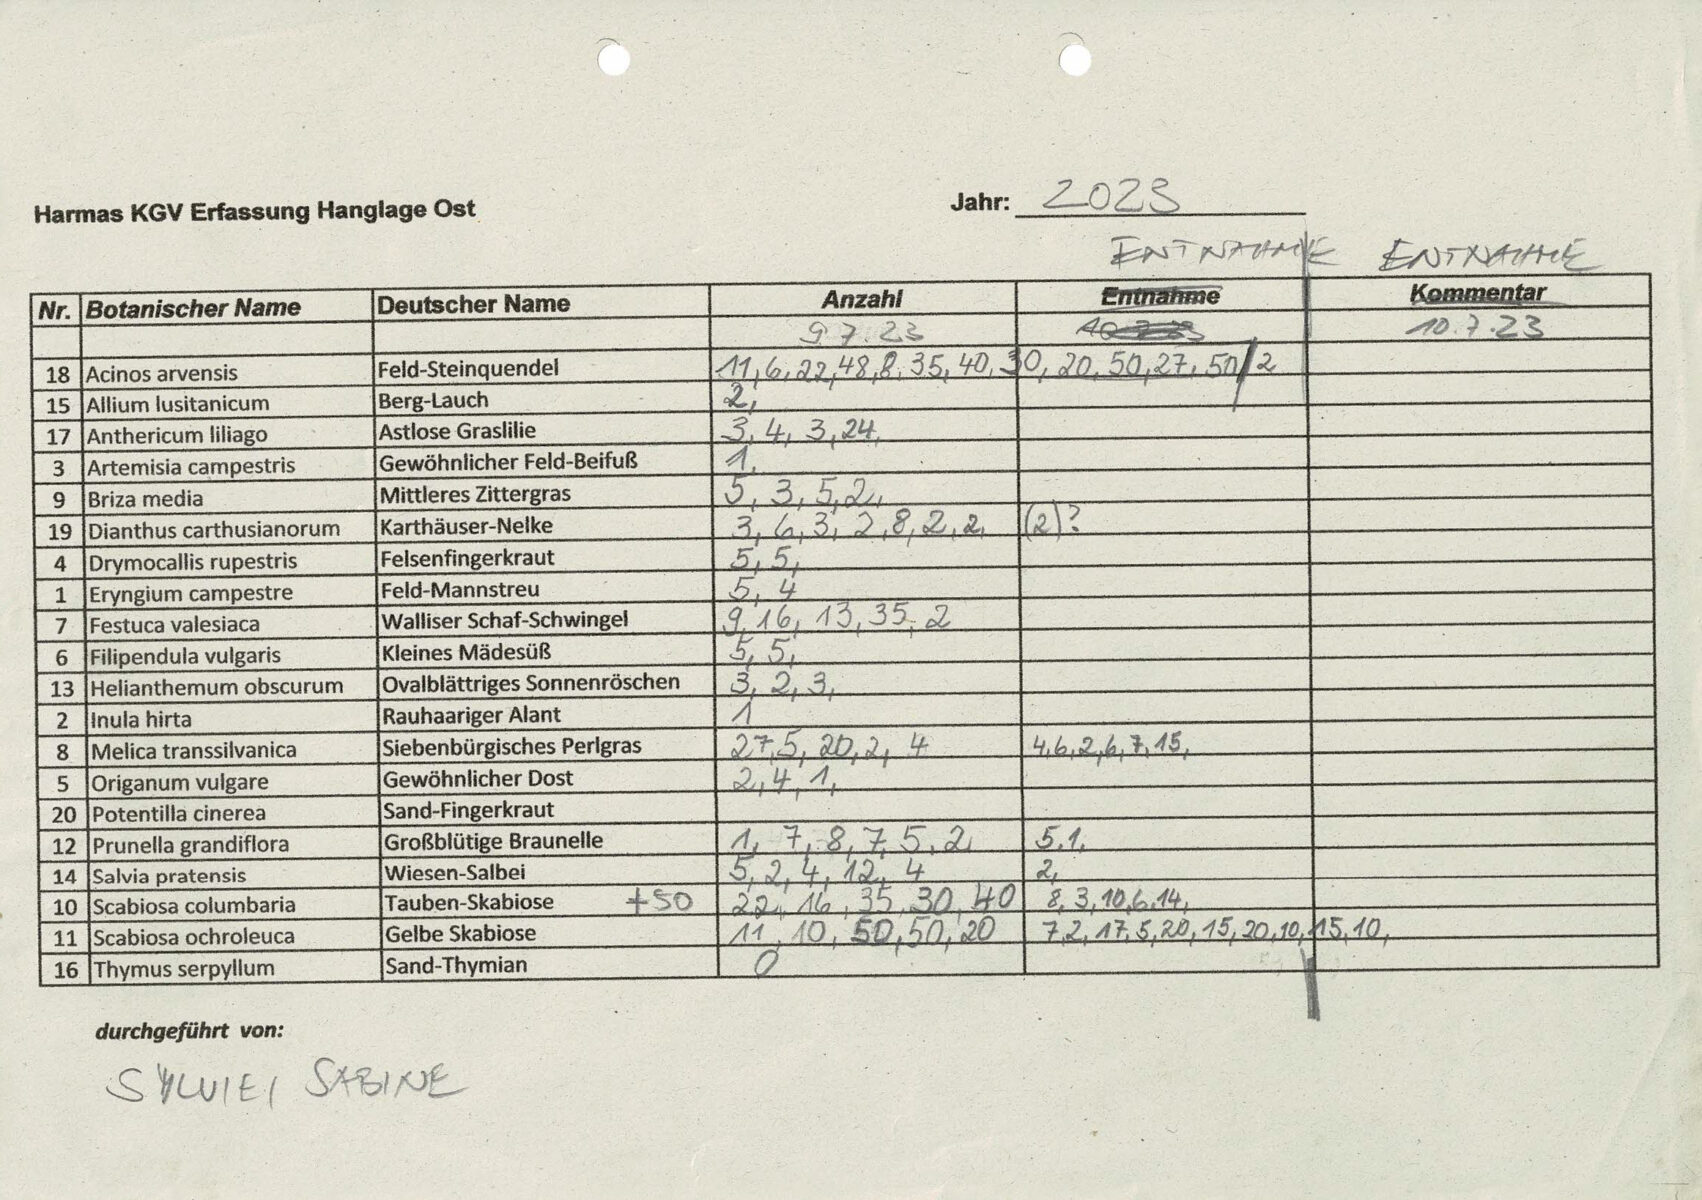 Harmas KGV Erfassung Hanglage Ost Jahr: 2023
ENTNAHME ENTNAHME
Nr. Botanischer Name Deutscher Name Anzahl Entnahme Kommentar
9.7.23 10.7.23
18 Acinos arvensis Feld-Steinquendel 11, 6, 22, 48, 8, 35, 40, 30, 20, 50, 27, 50/2
15 Allium lusitanicum Berg-Lauch 2,
17 Anthericum liliago Astlose Graslilie 3, 4, 3, 24,
3 Artemisia campestris Gewöhnlicher Feld-Beifuß 1,
9 Briza media Mittleres Zittergras 5, 3, 5, 2,,
19 Dianthus carthusianorum Karthäuser-Nelke 3, 6, 3, 2, 8, 2, 2, (2)?
4 Drymocallis rupestris Felsenfingerkraut 5, 5,
1 Eryngium campestre Feld-Mannstreu 5, 4
7 Festuca valesiaca Walliser Schaf-Schwingel 9, 16, 13, 35, 2
6 Filipendula vulgaris Kleines Mädesüß 5, 5,
13 Helianthemum obscurum Ovalblättriges Sonnenröschen 3, 2, 3,
2 Inula hirta Rauhaariger Alant 1
8 Melica transsilvanica Siebenbürgisches Perlgras 27, 5, 20, 2, 4 4, 6, 2, 6, 7, 15,
5 Origanum vulgare Gewöhnlicher Dost 2, 4, 1,
20 Potentilla cinerea Sand-Fingerkraut
12 Prunella grandiflora Großblütige Braunelle 1, 7, 8, 7, 5, 2, 5, 1,
14 Salvia pratensis Wiesen-Salbei 5, 2, 4, 12, 4 2,
10 Scabiosa columbaria Tauben-Skabiose +50 22, 16, 35, 30, 40 8, 3, 10, 6, 14,
11 Scabiosa ochroleuca Gelbe Skabiose 11, 10, 50, 50, 20 7, 2, 17, 5, 20, 15, 20, 10, 15, 10,
16 Thymus serpyllum Sand-Thymian 0
durchgeführt von:
SYLVIE, SABINE